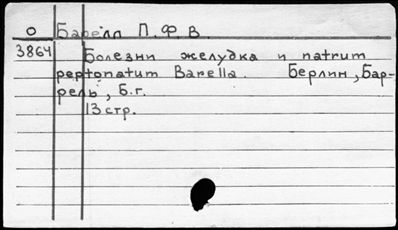 О Барелл П.Ф.В
3864 Болезни желудка и natrum
peptonatum Barella. Берлин, Бар-
рель, б.г.
13 стр.